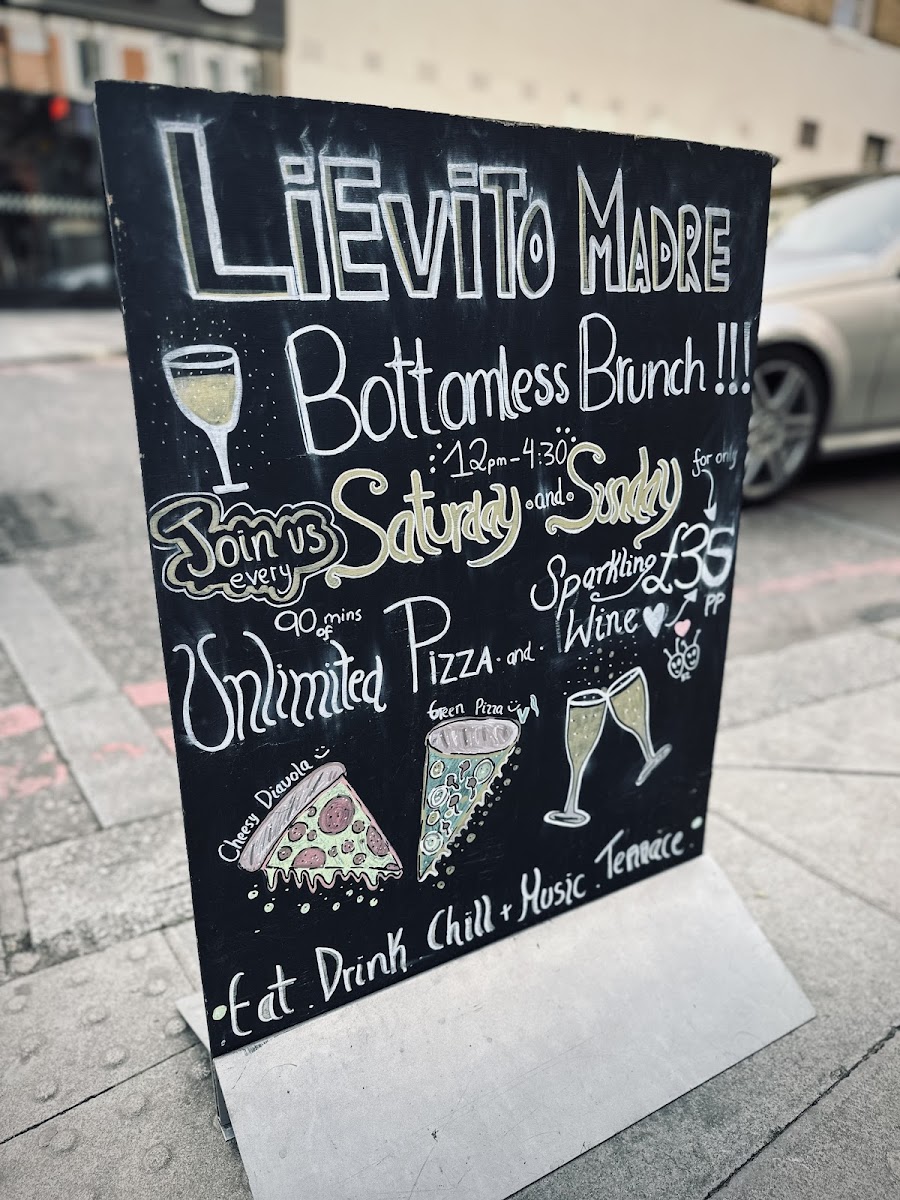 LiEviTo MADRE
Bottomless Brunch !!!
12pm - 4:30
Join us every
Saturday and Sunday
for only
£35
PP
90 mins of
Unlimited PIZZA and
Sparkling Wine
Cheesy Diavola
Green Pizza
Eat Drink Chill + Music Terrace